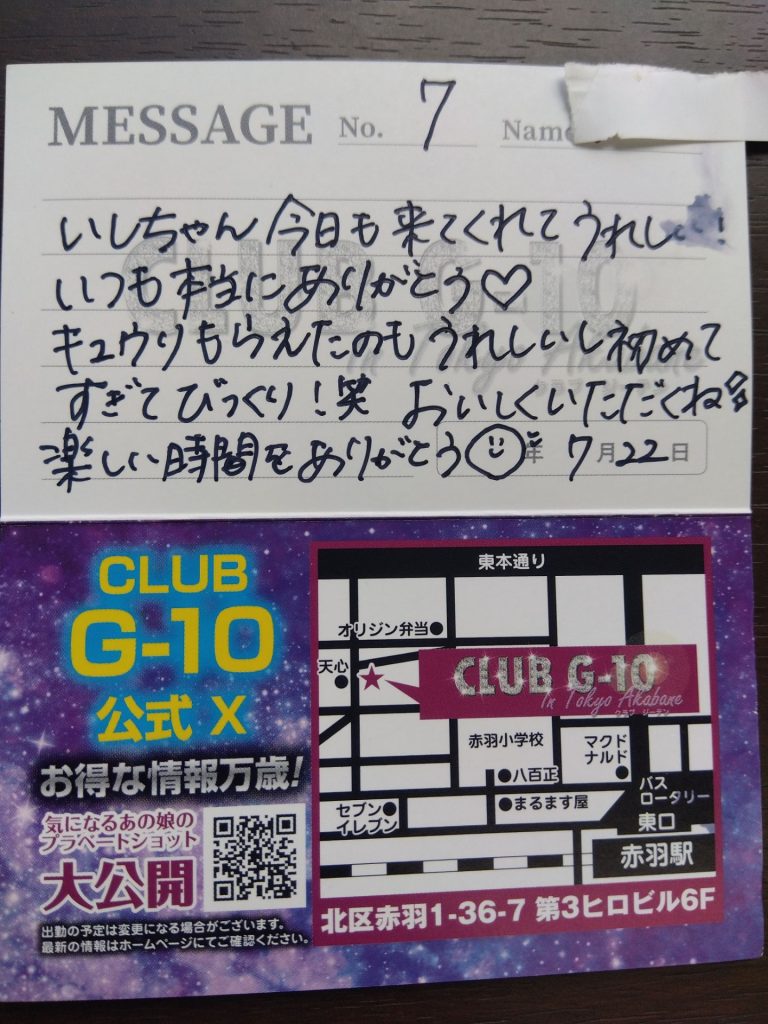 MESSAGE No. 7 Name
いしちゃん 今日も来てくれてうれし
いつも本当にありがとう♡
キュウリもらえたのもうれしいし初めて
すぎてびっくり!笑 おいしくいただくね
楽しい時間をありがとう
年 7月22日
CLUB G-10
In Tokyo Akabane
クラブ ジーテン
CLUB
G-10
公式 X
お得な情報万歳!
気になるあの娘の
プラベートショット
大公開
出勤の予定は変更になる場合がございます。
最新の情報はホームページにてご確認ください。
東本通り
オリジン弁当
天心
CLUB G-10
In Tokyo Akabane
クラブ ジーテン
赤羽小学校
マクド
ナルド
八百正
まるます屋
セブン
イレブン
バス
ロータリー
東口
赤羽駅
北区赤羽1-36-7 第3ヒロビル6F